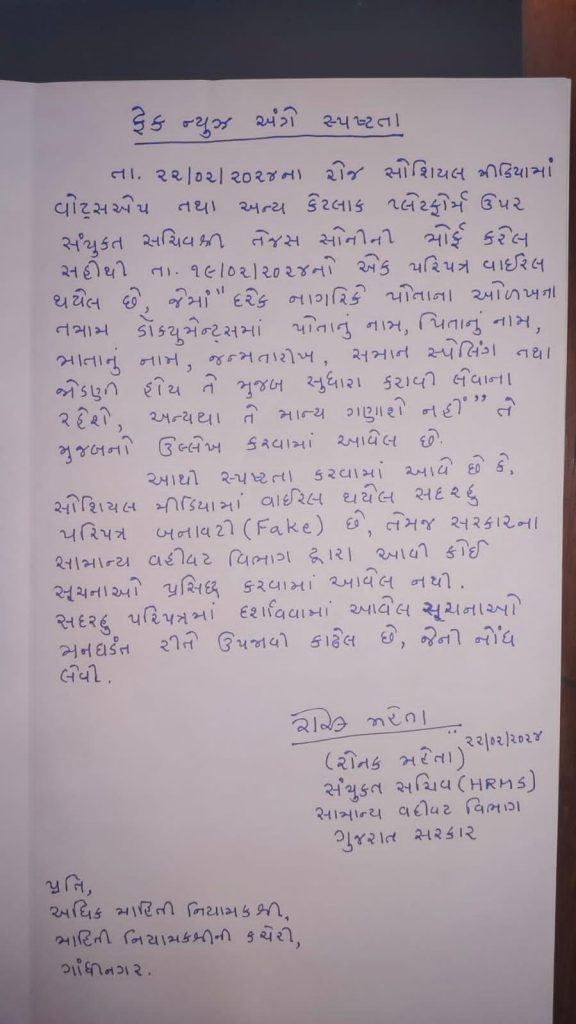 ફેક ન્યુઝ અંગે સ્પષ્ટતા
તા. ૨૨/૦૨/૨૦૨૪ના રોજ સોશિયલ મીડિયામાં
વોટ્સએપ તથા અન્ય કેટલાક પ્લેટફોર્મ ઉપર
સંયુક્ત સચિવશ્રી તેજસ સોનીની મોર્ફ કરેલ
સહીથી તા. ૧૯/૦૨/૨૦૨૪નો એક પરિપત્ર વાઈરલ
થયેલ છે, જેમાં "દરેક નાગરિકે પોતાના ઓળખના
તમામ ડોક્યુમેન્ટ્સમાં પોતાનું નામ, પિતાનું નામ,
માતાનું નામ, જન્મતારીખ, સમાન સ્પેલિંગ તથા
જોડણી હોય તે મુજબ સુધારા કરાવી લેવાના
રહેશે, અન્યથા તે માન્ય ગણાશે નહીં" તે
મુજબનો ઉલ્લેખ કરવામાં આવેલ છે.
આથી સ્પષ્ટતા કરવામાં આવે છે કે,
સોશિયલ મીડિયામાં વાઈરલ થયેલ સદરહુ
પરિપત્ર બનાવટી (Fake) છે, તેમજ સરકારના
સામાન્ય વહીવટ વિભાગ દ્વારા આવી કોઈ
સૂચનાઓ પ્રસિદ્ધ કરવામાં આવેલ નથી.
સદરહુ પરિપત્રમાં દર્શાવવામાં આવેલ સૂચનાઓ
મનઘડંત રીતે ઉપજાવી કાઢેલ છે, જેની નોંધ
લેવી.
મહેતા
૨૨/૦૨/૨૦૨૪
(રોનક મહેતા)
સંયુક્ત સચિવ (HRMS)
સામાન્ય વહીવટ વિભાગ
ગુજરાત સરકાર
પ્રતિ,
અધિક માહિતી નિયામકશ્રી,
માહિતી નિયામકશ્રીની કચેરી,
ગાંધીનગર.